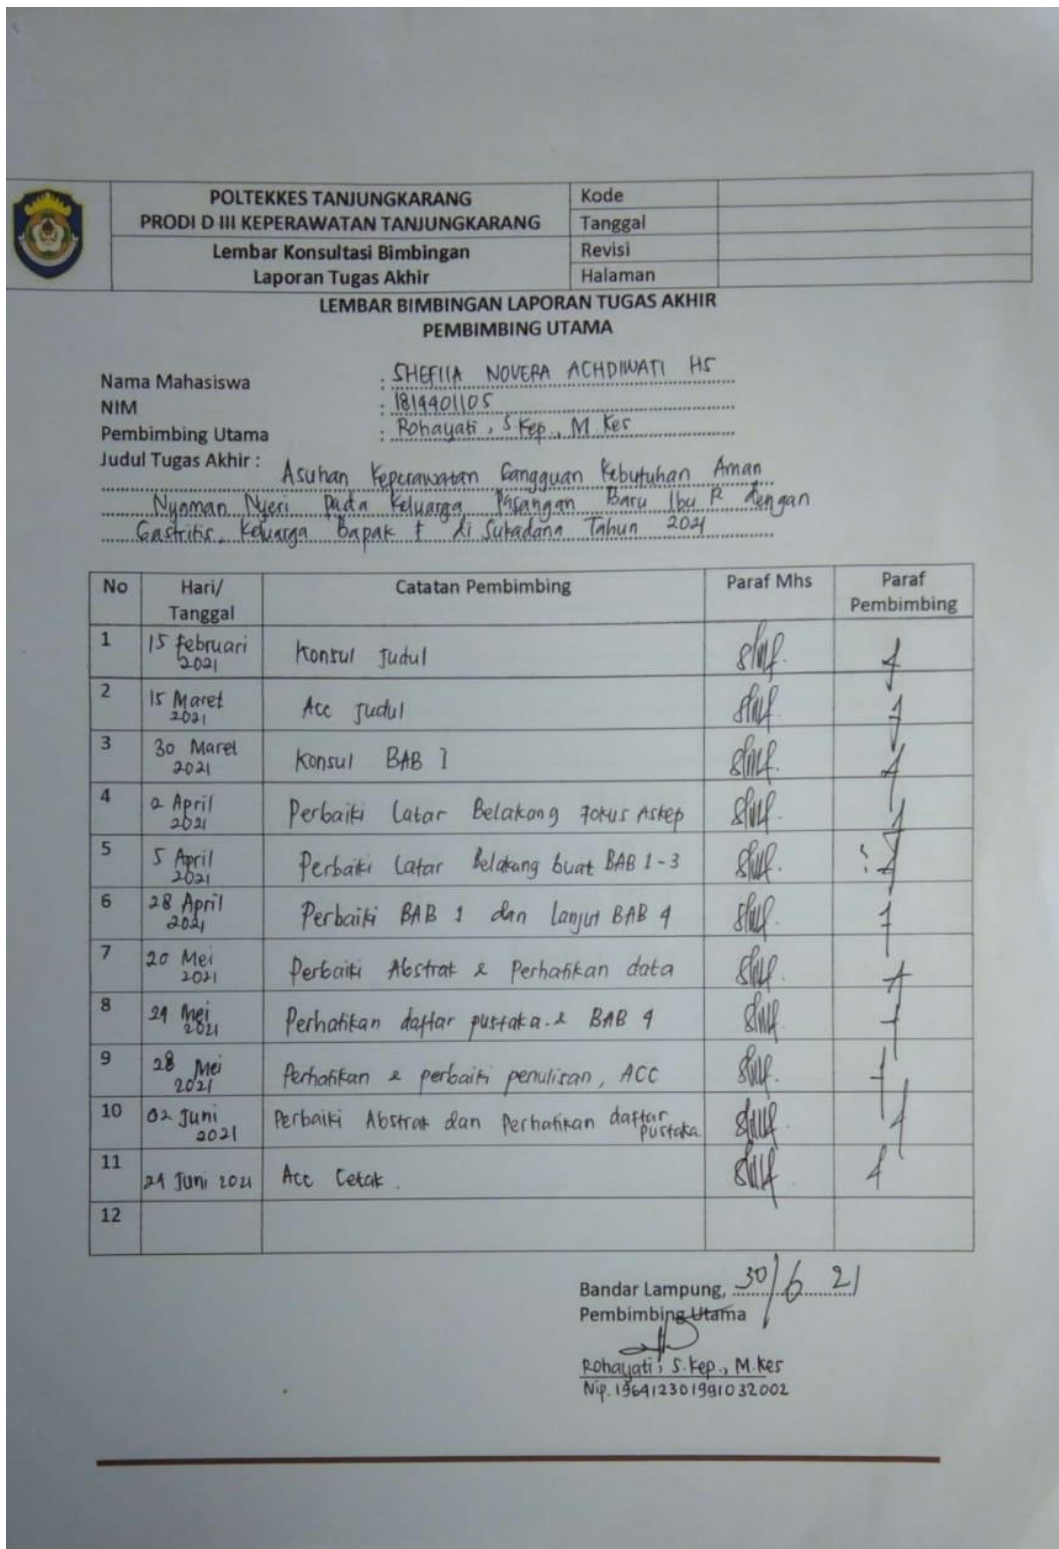 POLTEKKES TANJUNGKARANG
PRODI D III KEPERAWATAN TANJUNGKARANG
Lembar Konsultasi Bimbingan
Laporan Tugas Akhir
Kode
Tanggal
Revisi
Halaman
LEMBAR BIMBINGAN LAPORAN TUGAS AKHIR
PEMBIMBING UTAMA
Nama Mahasiswa : SHEFIIA NOVERA ACHDIWATI HS
NIM : 1814401105
Pembimbing Utama : Rohayati, S.Kep., M.Kes
Judul Tugas Akhir : Asuhan Keperawatan Gangguan Kebutuhan Aman
Nyaman Nyeri Pada Keluarga Pasangan Baru Ibu R dengan
Gastritis, Keluarga Bapak di Sukadana Tahun 2021
No Hari/ Tanggal Catatan Pembimbing Paraf Mhs Paraf Pembimbing
1 15 februari 2021 Konsul Judul
2 15 Maret 2021 Acc Judul
3 30 Maret 2021 Konsul BAB 1
4 2 April 2021 Perbaiki Latar Belakang Fokus Askep
5 5 April 2021 Perbaiki Latar Belakang buat BAB 1-3
6 28 April 2021 Perbaiki BAB 1 dan Lanjut BAB 4
7 20 Mei 2021 Perbaiki Abstrak & Perhatikan data
8 24 Mei 2021 Perhatikan daftar pustaka & BAB 4
9 28 Mei 2021 Perhatikan & perbaiki penulisan, ACC
10 02 Juni 2021 Perbaiki Abstrak dan Perhatikan daftar pustaka
11 24 Juni 2021 Acc Cetak.
12
Bandar Lampung, 30/6 21
Pembimbing Utama
Rohayati, S.Kep., M.Kes
Nip. 196412301991032002